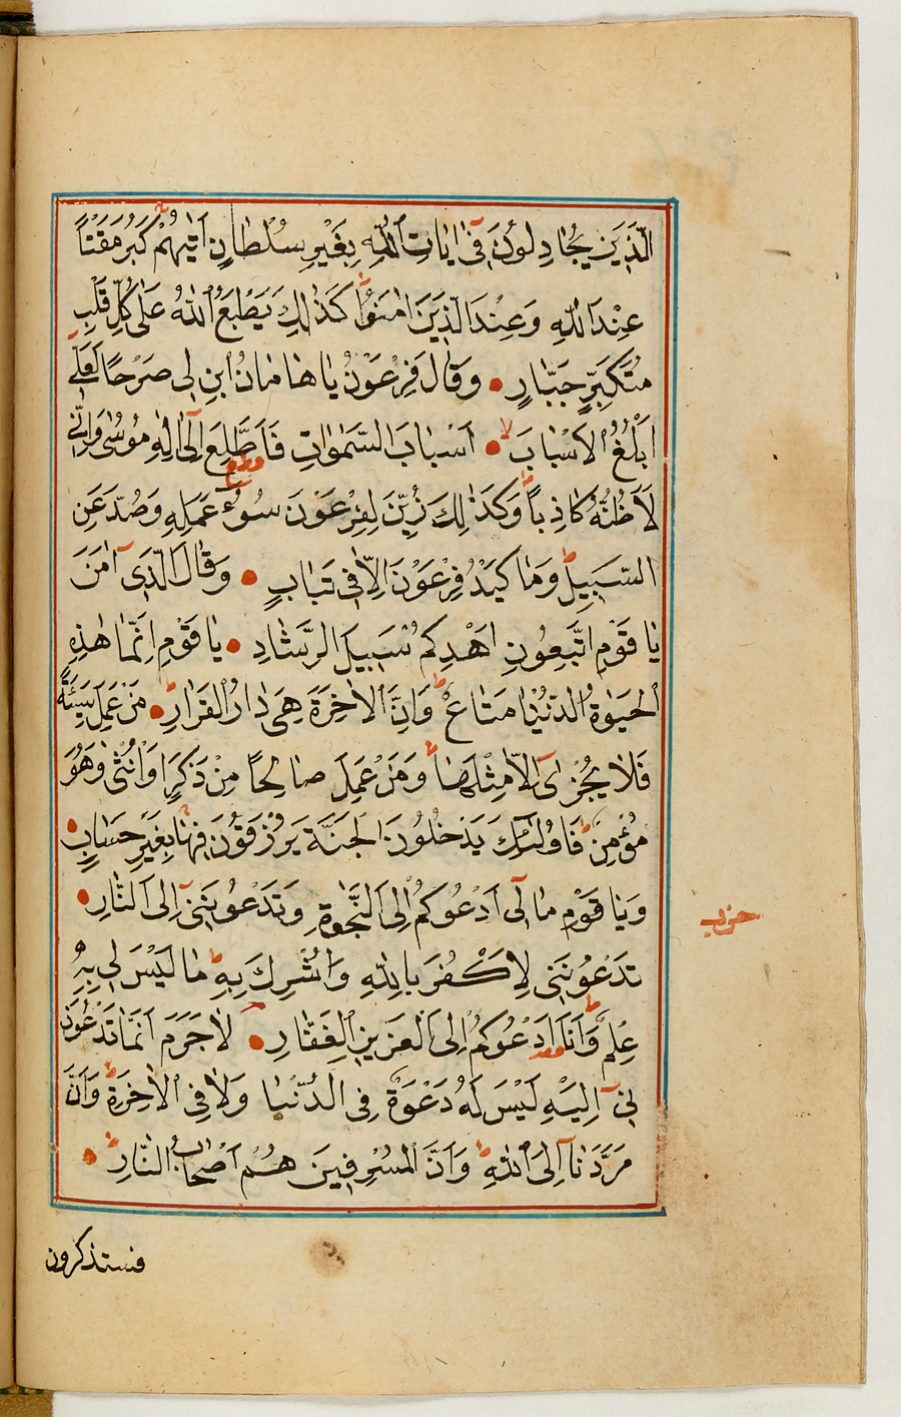 اَلَّذ۪ينَ يُجَادِلُونَ ف۪ٓي اٰيَاتِ اللّٰهِ بِغَيْرِ سُلْطَانٍ اَتٰيهُمْ كَبُرَ مَقْتاً
عِنْدَ اللّٰهِ وَعِنْدَ الَّذ۪ينَ اٰمَنُواۜ كَذٰلِكَ يَطْبَعُ اللّٰهُ عَلٰى كُلِّ قَلْبِ
مُتَكَبِّرٍ جَبَّارٍ • وَقَالَ فِرْعَوْنُ يَا هَامَانُ ابْنِ ل۪ي صَرْحاً لَعَلّ۪ٓي
اَبْلُغُ الْاَسْبَابَۙ • اَسْبَابَ السَّمٰوَاتِ فَاَطَّلِعَ اِلٰٓى اِلٰهِ مُوسٰى وَاِنّ۪ي
لَاَظُنُّهُ كَاذِباًۜ وَكَذٰلِكَ زُيِّنَ لِفِرْعَوْنَ سُوءُ عَمَلِهِ وَصُدَّ عَنِ
السَّب۪يلِۜ وَمَا كَيْدُ فِرْعَوْنَ اِلَّا ف۪ي تَبَابٍ • وَقَالَ الَّذ۪ٓي اٰمَنَ
يَا قَوْمِ اتَّبِعُونِ اَهْدِكُمْ سَب۪يلَ الرَّشَادِ • يَا قَوْمِ اِنَّمَا هٰذِهِ
الْحَيٰوةُ الدُّنْيَا مَتَاعٌۘ وَاِنَّ الْاٰخِرَةَ هِيَ دَارُ الْقَرَارِ • مَنْ عَمِلَ سَيِّئَةً
فَلَا يُجْزٰٓى اِلَّا مِثْلَهَاۜ وَمَنْ عَمِلَ صَالِحاً مِنْ ذَكَرٍ اَوْ اُنْثٰى وَهُوَ
مُؤْمِنٌ فَاُولٰٓئِكَ يَدْخُلُونَ الْجَنَّةَ يُرْزَقُونَ ف۪يهَا بِغَيْرِ حِسَابٍ •
وَيَا قَوْمِ مَا ل۪ٓي اَدْعُوكُمْ اِلَى النَّجٰوةِ وَتَدْعُونَن۪ٓي اِلَى النَّارِ •
تَدْعُونَن۪ي لِاَكْفُرَ بِاللّٰهِ وَاُشْرِكَ بِهِ مَا لَيْسَ ل۪ي بِهِ
عِلْمٌۘ وَاَنَا۬ اَدْعُوكُمْ اِلَى الْعَز۪يزِ الْغَفَّارِ • لَا جَرَمَ اَنَّمَا تَدْعُونَن۪ٓي
ن۪ٓي اِلَيْهِ لَيْسَ لَهُ دَعْوَةٌ فِي الدُّنْيَا وَلَا فِي الْاٰخِرَةِ وَاَنَّ
مَرَدَّنَٓا اِلَى اللّٰهِ وَاَنَّ الْمُسْرِف۪ينَ هُمْ اَصْحَابُ النَّارِ •
حزب
فستذكرون